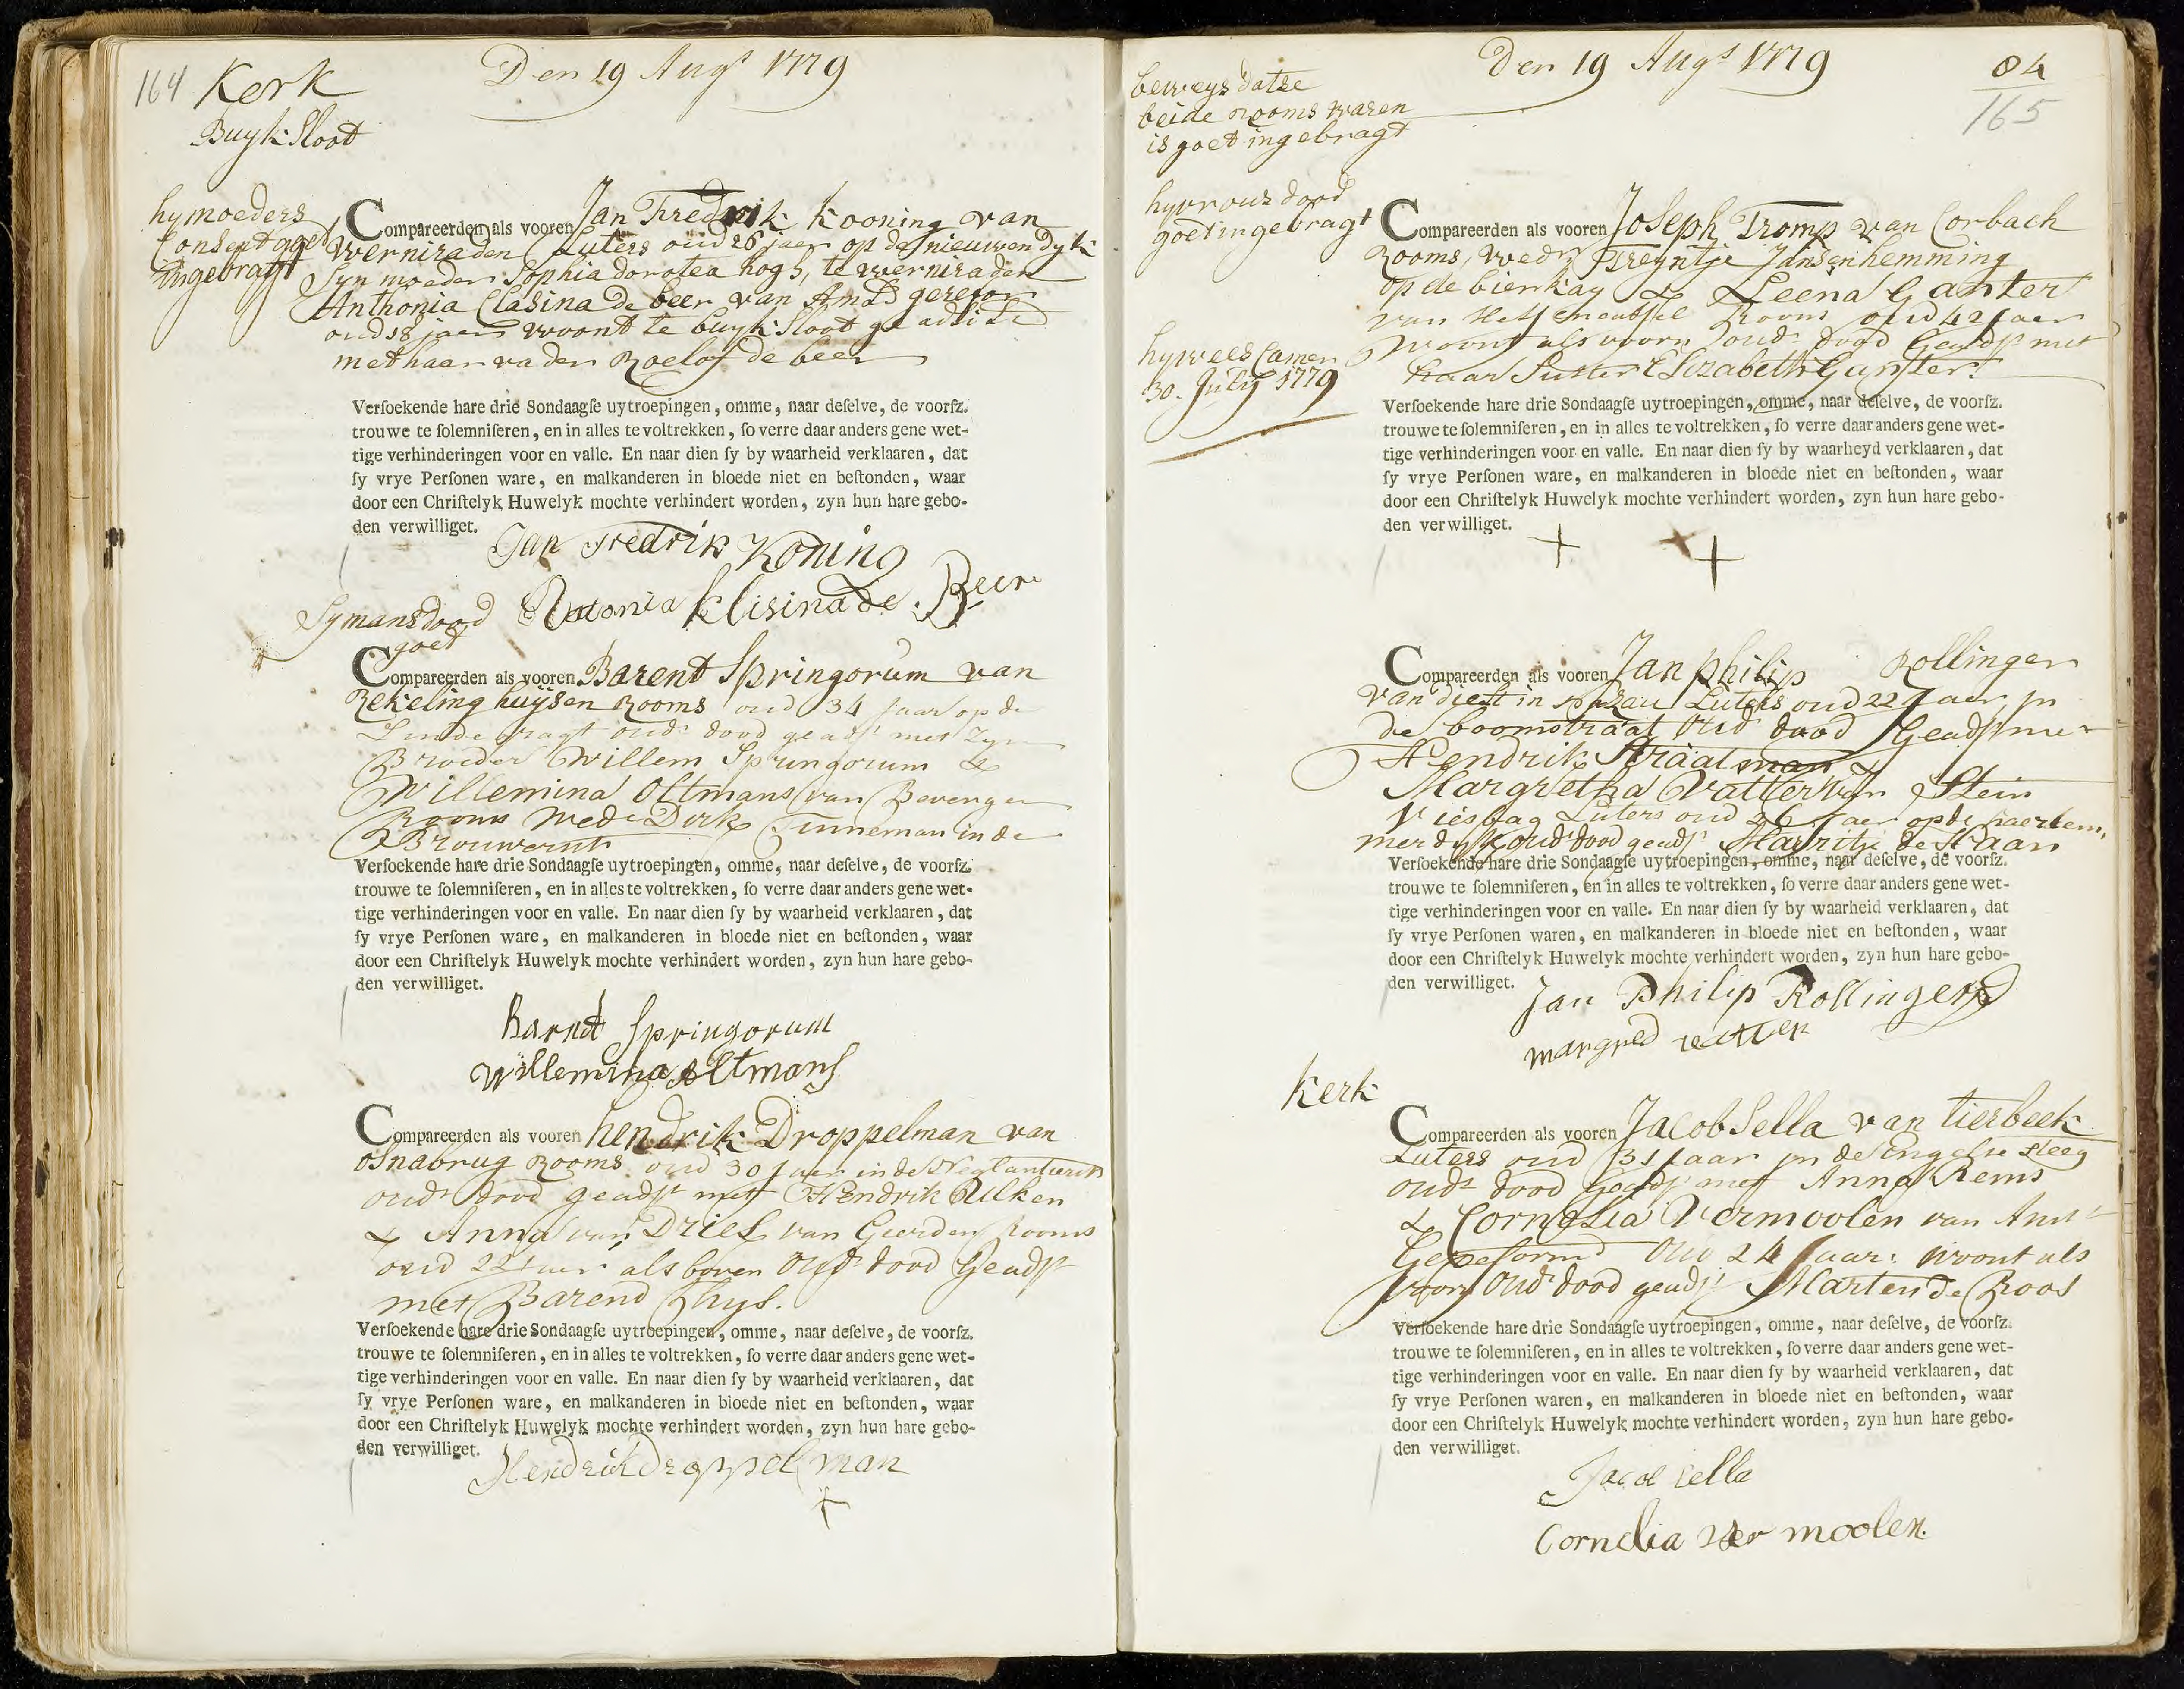 164 Kerk
Den 19 Augs 1779
Buyksloot
hy moeders
Consent goet
ingebragt
Compareerden als vooren Jan Fredrik Kooning van
Werniraden Luters oud 26 jaer op de nieuwendyk
Syn moeder Sophia dorotea hogs, te werniraden
Anthonia Clasina de beer van Amsd gerefor
oud 18 jaer woont te buyksloot ge adsist
met haar vader Roelof de beer
Verſoekende hare drie Sondaagſe uytroepingen, omme, naar deſelve, de voorſz.
trouwe te ſolemniſeren, en in alles te voltrekken, ſo verre daar anders gene wet-
tige verhinderingen voor en valle. En naar dien ſy by waarheid verklaaren, dat
ſy vrye Perſonen ware, en malkanderen in bloede niet en beſtonden, waar
door een Chriſtelyk Huwelyk mochte verhindert worden, zyn hun hare gebo-
den verwilliget.
Jan Fredrik Koning
Antonia Klisina de Beer
Sy mans dood
goet
Compareerden als vooren Barent Springorum van
Rekelinghuysen Rooms oud 34 jaar op de
Lindegragt oudrs dood geadst met Zyn
Broeder Willem Springorum &
Willemina Oltmans van Bevengen
Rooms Wede Dirk Tinneman in de
Brouwerst
Verſoekende hare drie Sondaagſe uytroepingen, omme, naar deſelve, de voorſz.
trouwe te ſolemniſeren, en in alles te voltrekken, ſo verre daar anders gene wet-
tige verhinderingen voor en valle. En naar dien ſy by waarheid verklaaren, dat
ſy vrye Perſonen ware, en malkanderen in bloede niet en beſtonden, waar
door een Chriſtelyk Huwelyk mochte verhindert worden, zyn hun hare gebo-
den verwilliget.
Barnd Springorum
Willemina Oltmans
Compareerden als vooren hendrik Droppelman van
Osnabrug Rooms oud 30 jaer in de Weglantierst
oudrs dood geadst met Hendrik Ulken
& Anna van Driel van Geerden Rooms
oud 22 jaer als boven oudrs dood Geadst
met Barend Thys.
Verſoekende hare drie Sondaagſe uytroepingen, omme, naar deſelve, de voorſz.
trouwe te ſolemniſeren, en in alles te voltrekken, ſo verre daar anders gene wet-
tige verhinderingen voor en valle. En naar dien ſy by waarheid verklaaren, dat
ſy vrye Perſonen ware, en malkanderen in bloede niet en beſtonden, waar
door een Chriſtelyk Huwelyk mochte verhindert worden, zyn hun hare gebo-
den verwilliget.
Hendrik droppelman
+
Den 19 Augs 1779
84
165
beweys datze
beide rooms waren
is goet ingebragt
hy vrouws dood
goet ingebragt
hy wees Camer
30. July 1779
Compareerden als vooren Joseph Tromp van Corbach
Rooms, wedr Treyntje Jansen hemming
op de bierkay & Leena Ganter
van Rooms oud 42 jaer
Woont als voorn oudrs dood Geadst met
haar Suster Elizabeth Ganster
Verſoekende hare drie Sondaagſe uytroepingen, omme, naar deſelve, de voorſz.
trouwe te ſolemniſeren, en in alles te voltrekken, ſo verre daar anders gene wet-
tige verhinderingen voor en valle. En naar dien ſy by waarheyd verklaaren, dat
ſy vrye Perſonen ware, en malkanderen in bloede niet en beſtonden, waar
door een Chriſtelyk Huwelyk mochte verhindert worden, zyn hun hare gebo-
den verwilliget.
+ +
Compareerden als vooren Jan philip Rollinger
van diest in nazau Luters oud 22 jaer in
de boomstraat oudrs dood Geadst met
Hendrik Straatman &
Margretha Vatter van Stein
Viesbag Luters oud 26 jaer op de haerlem
merdyk oudrs dood geadst Marritje de Haan
Verſoekende hare drie Sondaagſe uytroepingen, omme, naar deſelve, de voorſz.
trouwe te ſolemniſeren, en in alles te voltrekken, ſo verre daar anders gene wet-
tige verhinderingen voor en valle. En naar dien ſy by waarheid verklaaren, dat
ſy vrye Perſonen waren, en malkanderen in bloede niet en beſtonden, waar
door een Chriſtelyk Huwelyk mochte verhindert worden, zyn hun hare gebo-
den verwilliget.
Jan Philip Rollinger
margred vatter
Kerk
Compareerden als vooren Jacob Sella van tierbeek
Luters oud 31 jaar in de Engelse steeg
oudrs dood Geadst met Anna Rems
& Cornelia Vermoolen van Amst
Gereformd oud 24 jaar: woont als
voorn oudrs dood geadst Marten de Roos
Verſoekende hare drie Sondaagſe uytroepingen, omme, naar deſelve, de voorſz.
trouwe te ſolemniſeren, en in alles te voltrekken, ſo verre daar anders gene wet-
tige verhinderingen voor en valle. En naar dien ſy by waarheid verklaaren, dat
ſy vrye Perſonen waren, en malkanderen in bloede niet en beſtonden, waar
door een Chriſtelyk Huwelyk mochte verhindert worden, zyn hun hare gebo-
den verwilliget.
Jacob Sella
Cornelia Ver moolen.